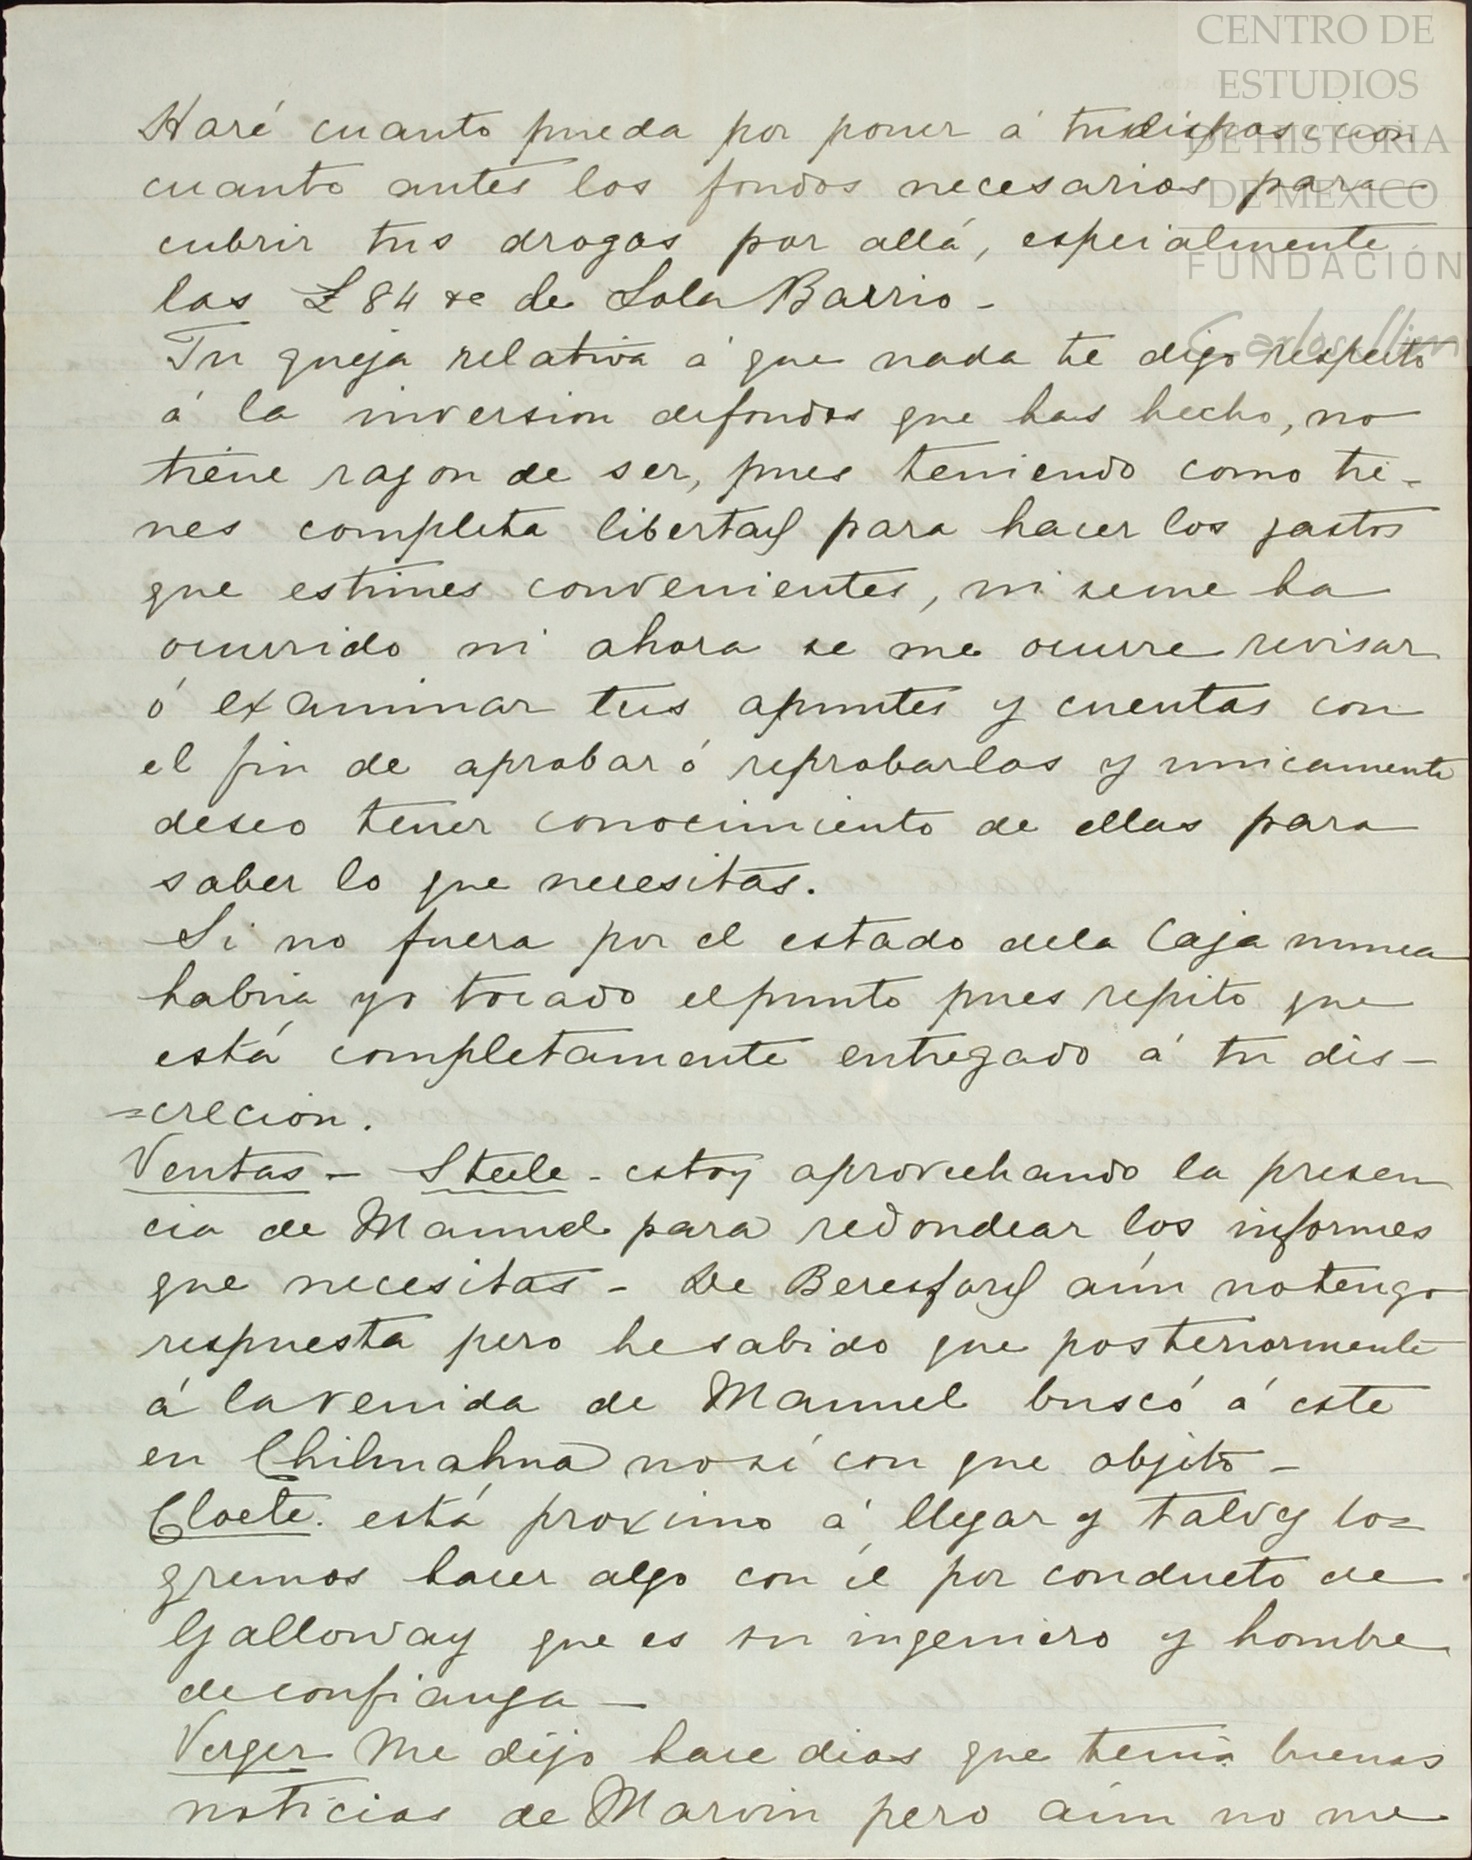 CENTRO DE
ESTUDIOS
DE HISTORIA
DE MEXICO
FUNDACIÓN
Carlos Slim
Haré cuanto pueda por poner á tu disposicion
cuanto antes los fondos necesarios para
cubrir tus drogas por allá, espeialmente
las £ 84 &c de Lola Barrio -
Tu queja relativa á que nada te digo respecto
á la inversion de fondos que has hecho, no
tiene razon de ser, pues teniendo como tie-
nes completa libertad para hacer los gastos
que estimes convenientes, ni se me ha
ocurrido ni ahora se me ocurre revisar
ó examinar tus apuntes y cuentas con
el fin de aprobar ó reprobarlas y unicamente
deseo tener conocimiento de ellas para
saber lo que necesitas.
Si no fuera por el estado de la Caja nunca
habria yo tocado el punto pues repito que
está completamente entregado á tu dis-
=crecion.
Ventas - Steele - estoy aprovechando la presen
cia de Manuel para redondear los informes
que necesitas - De Beresford aún no tengo
respuesta pero he sabido que posteriormente
á la venida de Manuel buscó á este
en Chihuahua no sé con que objeto -
Cloete. está proximo á llegar y talvez lo=
gremos hacer algo con él por conducto de
Galloway que es su ingeniero y hombre
de confianza -
Verger Me dijo hace dias que tenia buenas
noticias de Marvin pero aún no me